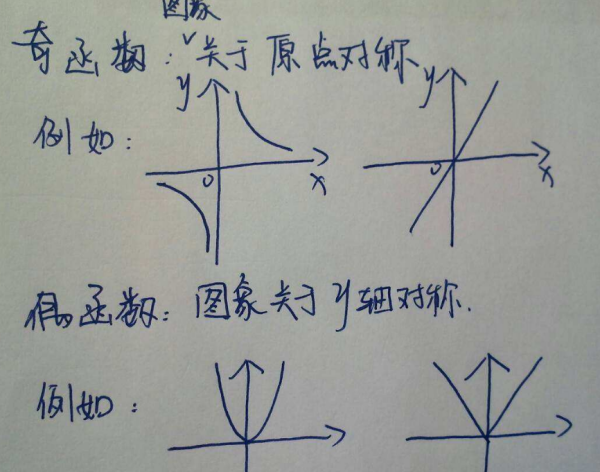 图象
奇函数：关于原点对称
例如：
y
x
0
y
x
0
偶函数：图象关于y轴对称.
例如：